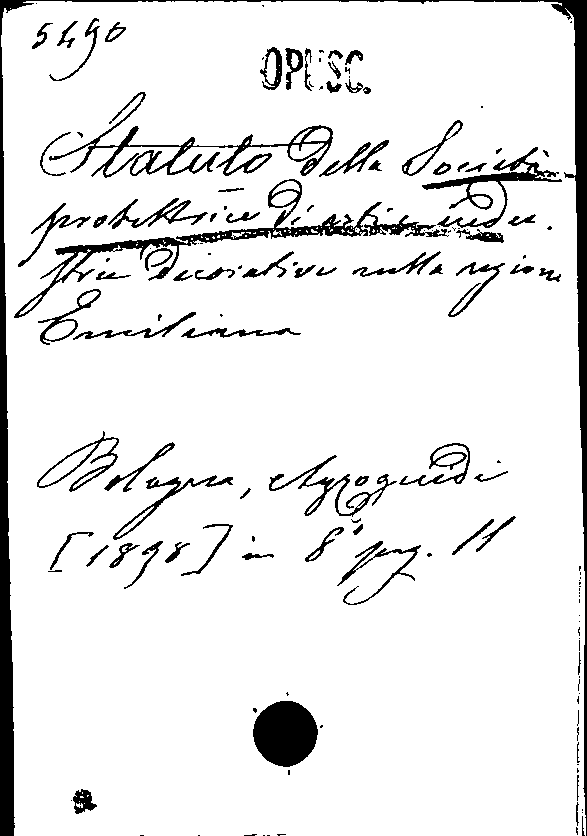 5490
OPUSC.
Statuto della Società
protettrice di arti e indu-
strie decorative nella regione
Emiliana
Bologna, Azzoguidi
[1898] in 8° pag. 11